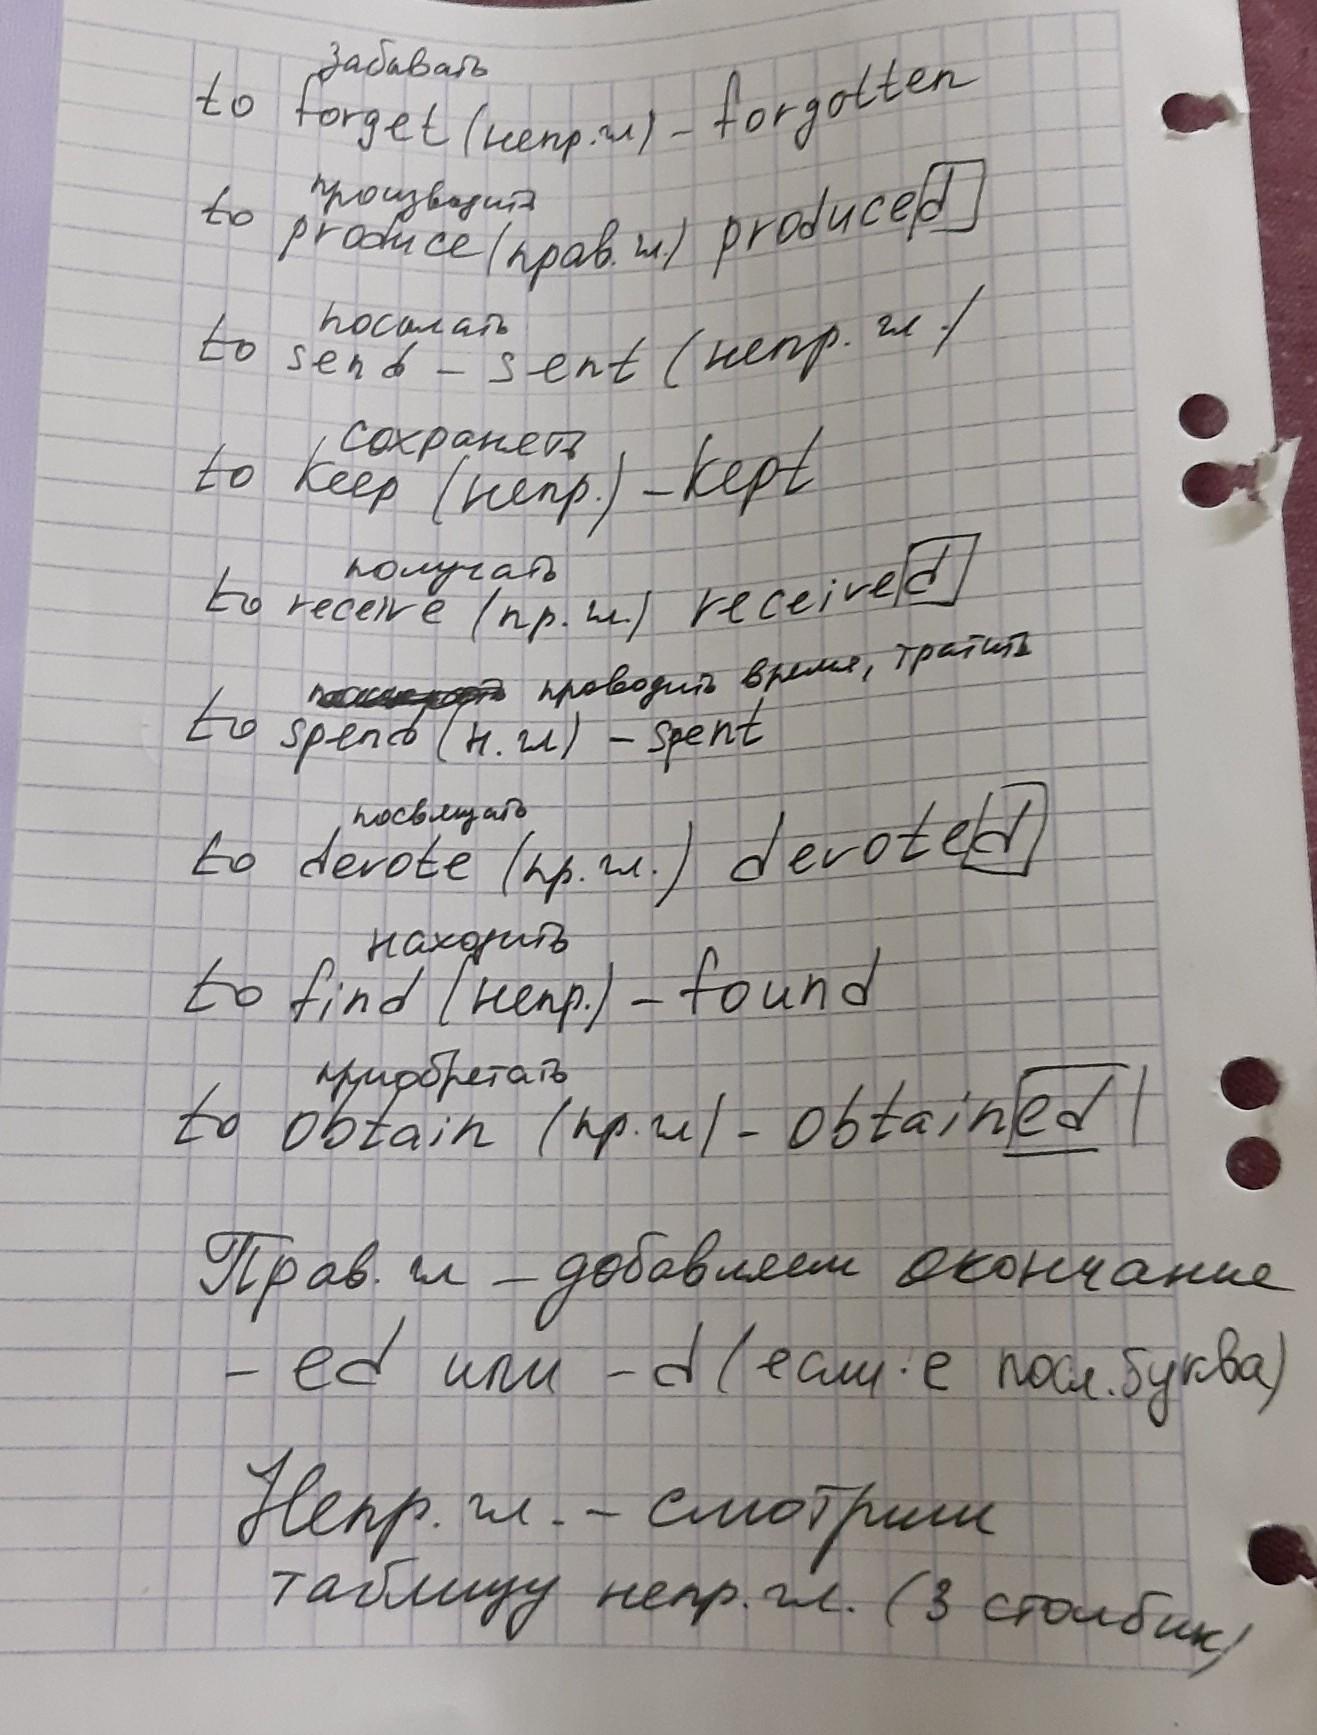 забывать
to forget (непр.гл) – forgotten
производить
to produce (прав.гл.) produced
посылать
to send – sent (непр. гл.)
сохранять
to keep (непр.) – kept
получать
to receive (пр.гл.) received
проводить время, тратить
to spend (н.гл) – spent
посвящать
to devote (пр.гл.) devoted
находить
to find (непр.) – found
приобретать
to obtain (пр.гл) – obtained
Прав. гл – добавляем окончание
– ed или – d (если е посл. буква)
Непр. гл. – смотрим
таблицу непр.гл. (3 столбик)